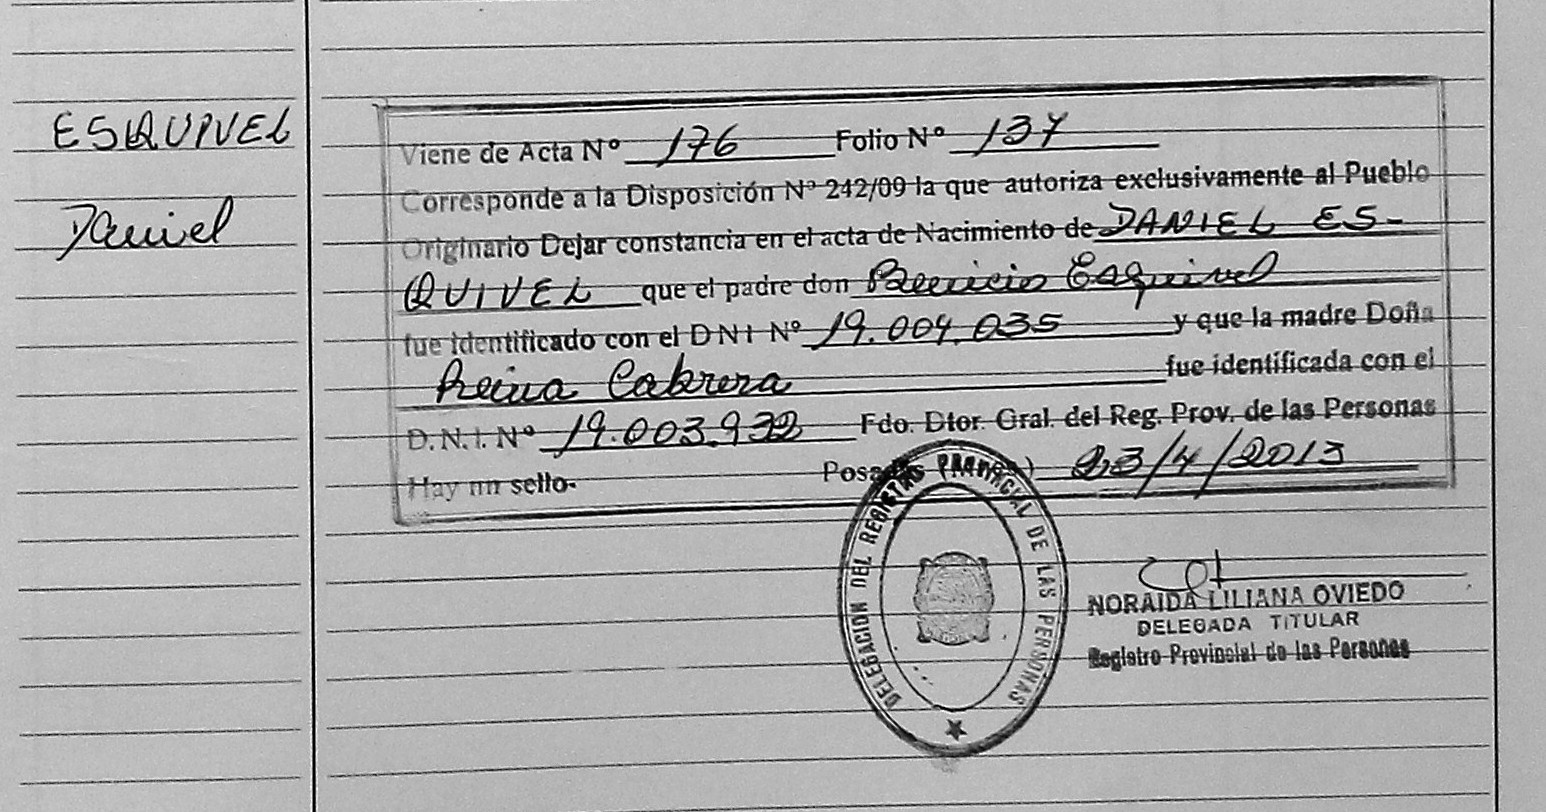 ESQUIVEL
Daniel
Viene de Acta Nº 176 Folio Nº 137
Corresponde a la Disposición Nº 242/09 la que autoriza exclusivamente al Pueblo
Originario Dejar constancia en el acta de Nacimiento de DANIEL ES-
QUIVEL que el padre don Esquivel
fue identificado con el DNI Nº 19.004.035 y que la madre Doña
Reina Cabrera fue identificada con el
D.N.I. Nº 19.003.932 Fdo. Dtor. Gral. del Reg. Prov. de las Personas
Hay un sello. 23/4/2013
DELEGACION DEL REGISTRO PROVINCIAL DE LAS PERSONAS
NORAIDA LILIANA OVIEDO
DELEGADA TITULAR
Registro Provincial de las Personas